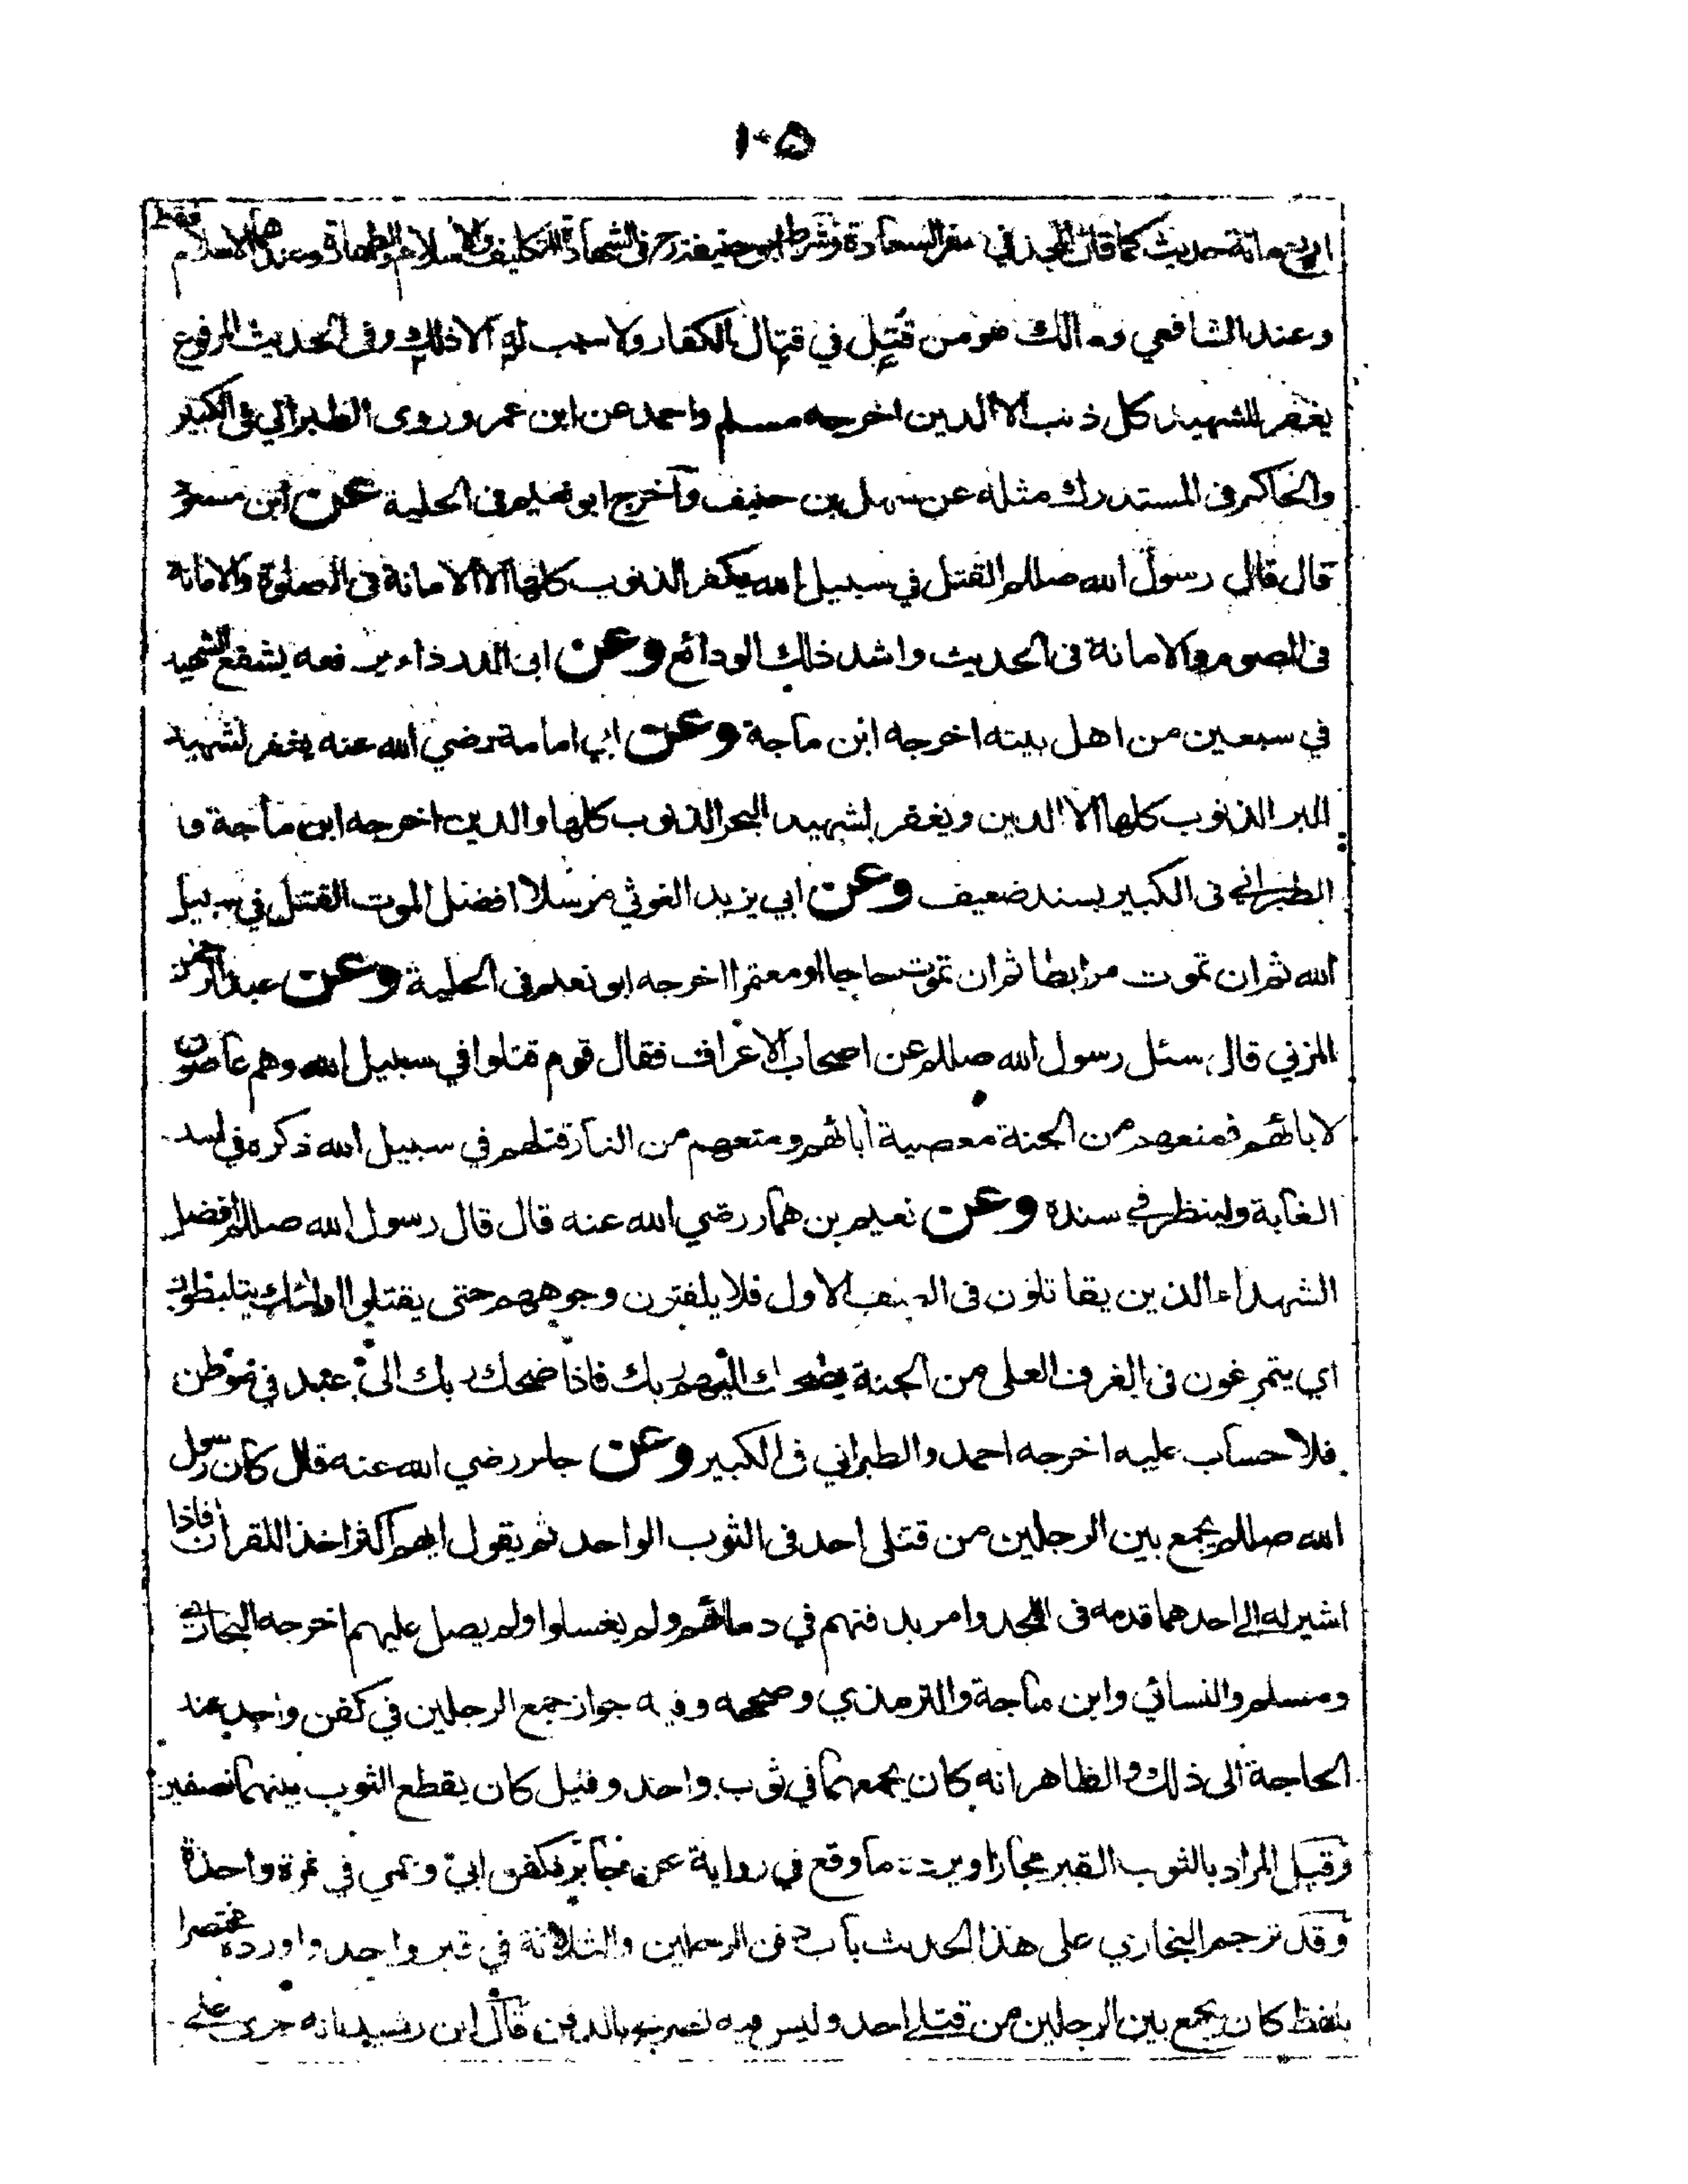 ١٠٥
اربع مائة حديث كما قال المجد في سفر السعادة وشرط ابو حنيفة رح فى الشهادة التكليف والاسلام والطهارة وعندهما الاسلام فقط
وعند الشافعي ومالك هو من قُتِل في قتال الكفار ولا سبب له الا ذلك وفى الحديث المرفوع
يغفر للشهيد كل ذنب الا الدين اخرجه مسلم واحمد عن ابن عمرو وروى الطبراني فى الكبير
والحاكم فى المستدرك مثله عن سهل بن حنيف وآخرج ابو نعيم فى الحلية عن ابن مسعود
قال قال رسول الله صللم القتل في سبيل الله يكفر الذنوب كلها الا الامانة فى الصلوة والامانة
فى الصوم والامانة فى الحديث واشد ذلك الودائع وعن ابى الدرداء يرفعه يشفع الشهيد
في سبعين من اهل بيته اخرجه ابن ماجة وعن ابي امامة رضي الله عنه يغفر لشهيد
البر الذنوب كلها الا الدين ويغفر لشهيد البحر الذنوب كلها والدين اخرجه ابن ماجة و
الطبراني فى الكبير بسند ضعيف وعن ابي يزيد الغوثي مرسلا افضل الموت القتل في سبيل
الله ثم ان تموت مرابطا ثم ان تموت حاجا او معتمرا اخرجه ابو نعيم فى الحلية وعن عبد الرحمن
المزني قال سئل رسول الله صللم عن اصحاب الاعراف فقال قوم قتلوا في سبيل الله وهم عاصون
لابائهم فمنعهم من الجنة معصية آبائهم ومنعهم من النار قتلهم في سبيل الله ذكره في اسد
الغابة ولينظر في سنده وعن نعيم بن همار رضي الله عنه قال قال رسول الله صللم افضل
الشهداء الذين يقاتلون فى الصف الاول فلا يلفتون وجوههم حتى يقتلوا اولئك يتلبطون
اي يتمرغون فى الغرف العلى من الجنة يضحك اليهم ربك فاذا ضحك ربك الى عبد في موطن
فلا حساب عليه اخرجه احمد والطبراني فى الكبير وعن جابر رضي الله عنه قال كان رسول
الله صللم يجمع بين الرجلين من قتلى احد فى الثوب الواحد ثم يقول ايهم اكثر اخذا للقرآن فاذا
اشير له الى احدهما قدمه فى اللحد وامر بدفنهم في دمائهم ولم يغسلوا ولم يصل عليهم اخرجه البخاري
ومسلم والنسائي وابن ماجة والترمذي وصححه وفيه جواز جمع الرجلين في كفن واحد عند
الحاجة الى ذلك والظاهر انه كان يجمعهما في ثوب واحد وقيل كان يقطع الثوب بينهما نصفين
وقيل المراد بالثوب القبر مجازا ويرده ما وقع في رواية عن جابر فكفن ابي وعمي في نمرة واحدة
وقد ترجم البخاري على هذا الحديث باب دفن الرجلين والثلاثة في قبر واحد واورده مختصرا
بلفظ كان يجمع بين الرجلين من قتلى احد وليس فيه تصريح بالدفن قال ابن رشيد بانه جرى على